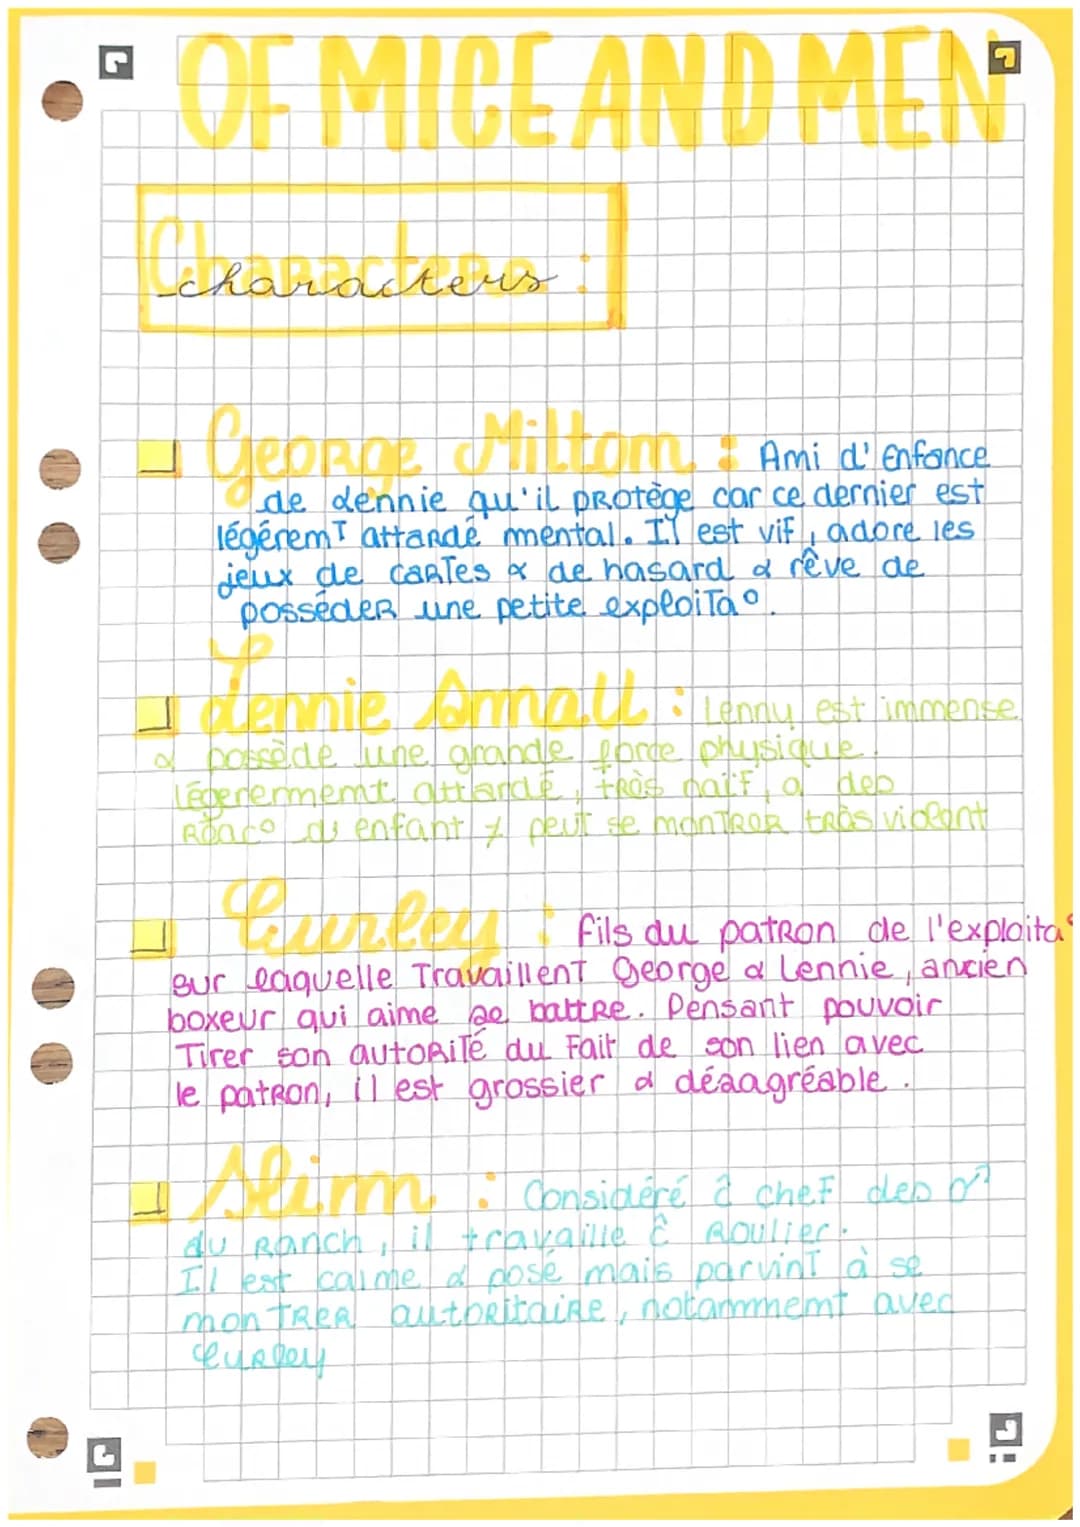 OF MICE AND MEN
Characters :
characters
George Miltom : Ami d'enfance
de Lennie qu'il protège car ce dernier est
légéremT attardé mental. Il est vif, adore les
jeux de cartes & de hasard & rêve de
posséder une petite exploita°.
Lennie Small : Lenny est immense
& possède une grande force physique.
Légerermemt attardé, très naïf, a des
Réac° d'enfant & peut se montrer très violent
Curley : fils du patron de l'exploita°
sur laquelle Travaillent George & Lennie, ancien
boxeur qui aime se battre. Pensant pouvoir
Tirer son autorité du Fait de son lien avec
le patron, il est grossier & désagréable.
Slim : Considéré ĉ chef des
du Ranch, il travaille ĉ Roulier.
Il est calme & posé mais parvinT à se
monTrer autoritaire, notammemt avec
Curley